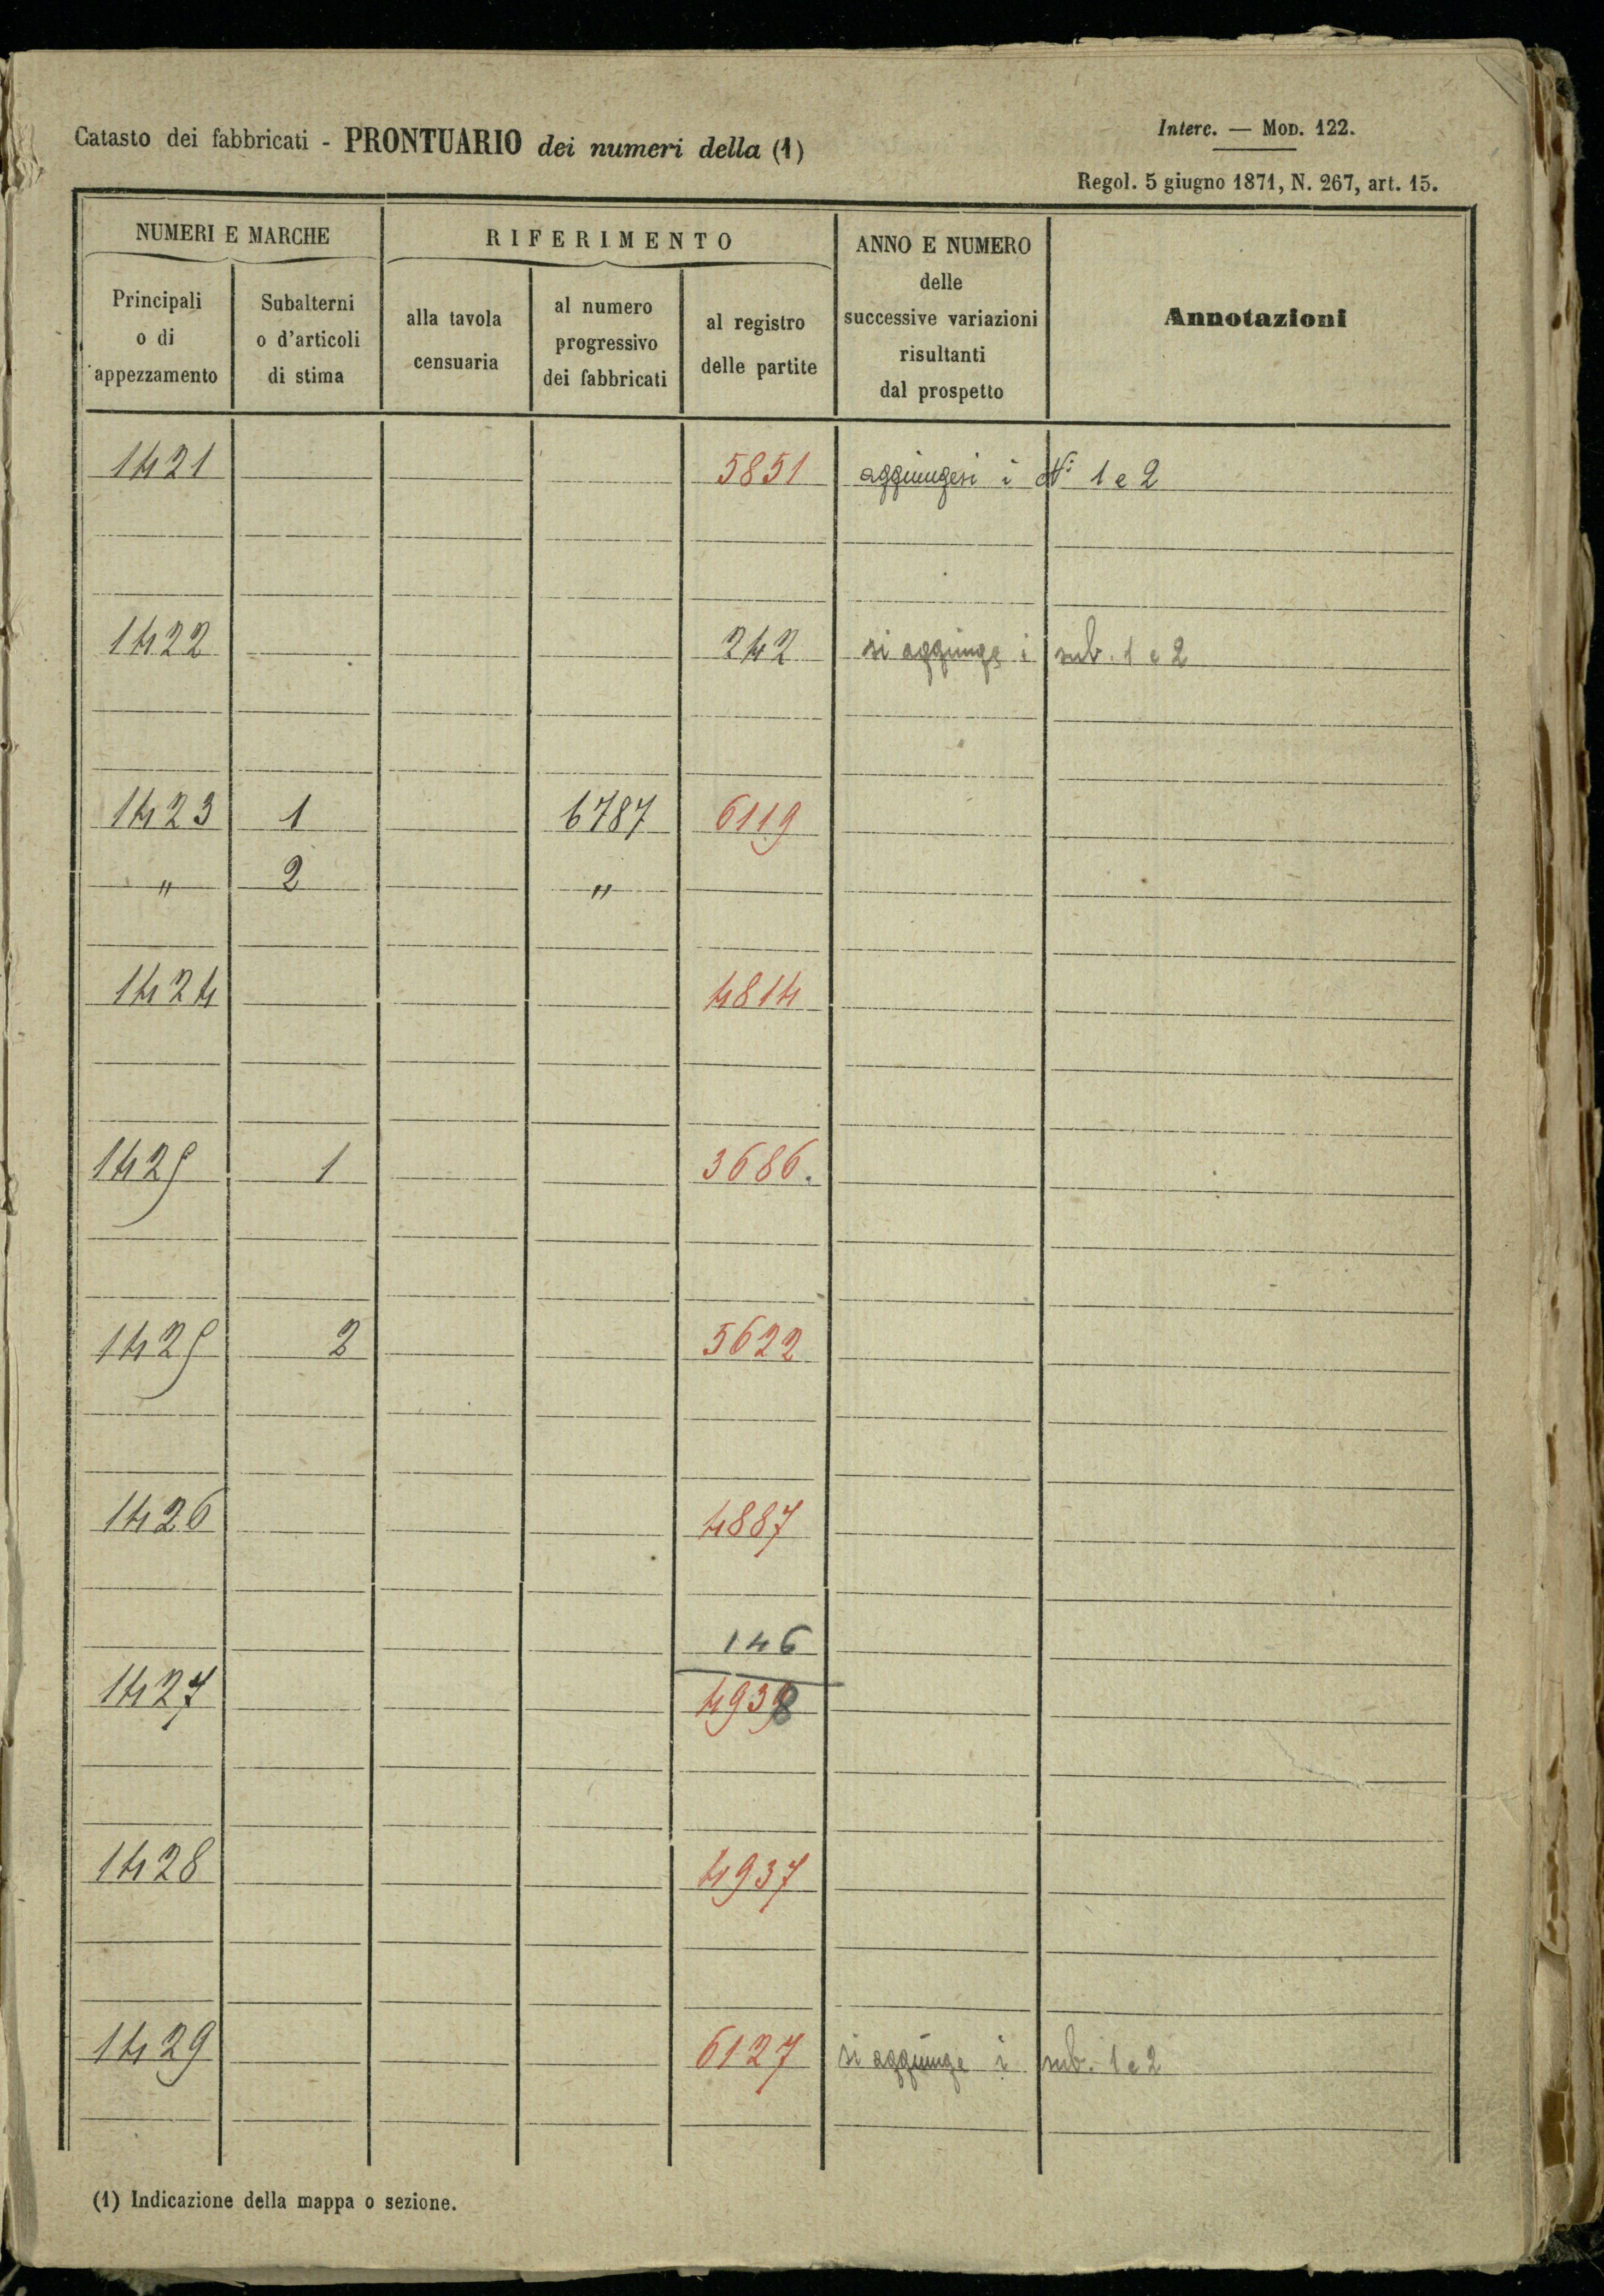 Catasto dei fabbricati - PRONTUARIO dei numeri della (1)
Interc. — Mod. 122.
Regol. 5 giugno 1871, N. 267, art. 15.
NUMERI E MARCHE
RIFERIMENTO
ANNO E NUMERO
delle
successive variazioni
risultanti
dal prospetto
Annotazioni
Principali
o di
appezzamento
Subalterni
o d'articoli
di stima
alla tavola
censuaria
al numero
progressivo
dei fabbricati
al registro
delle partite
1421 5851 aggiungesi i Ni 1 e 2
1422 242 si aggiunge i sub. 1 e 2
1423 1 6787 6119
" 2 "
1424 4814
1425 1 3686.
1425 2 5622
1426 4887
146
1427 4938
1428 4937
1429 6127 si aggiunge i sub. 1 e 2
(1) Indicazione della mappa o sezione.